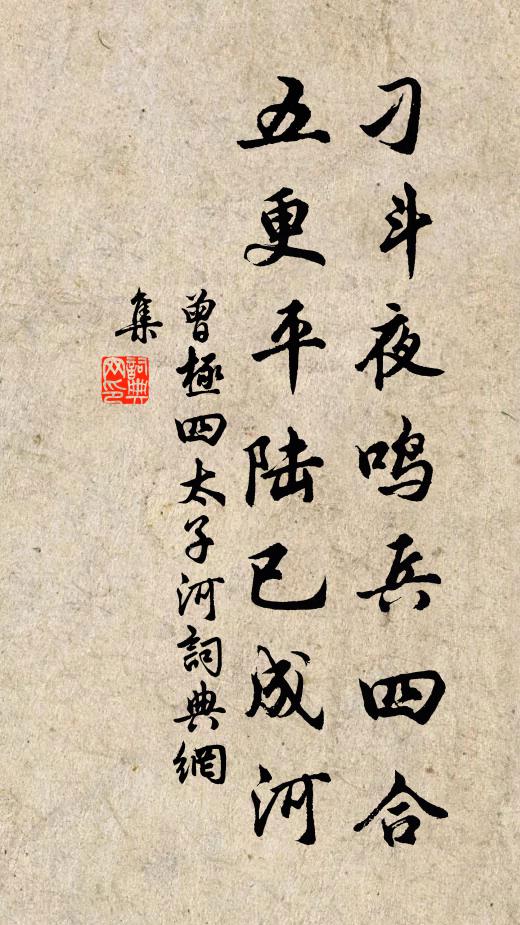 刁斗夜鸣兵四合
五更平陆已成河
曾極四太子河詞典網
集
詞典網印